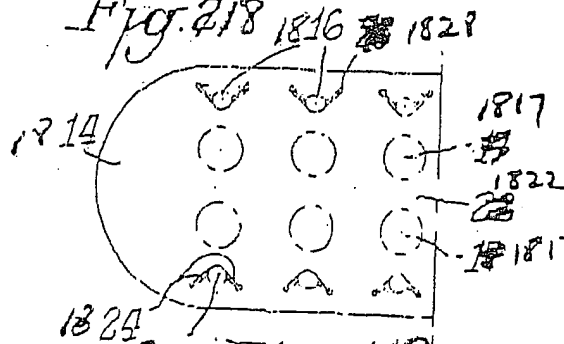 Fig. 218
1816 1828
1814
1817
1822
1817
1824